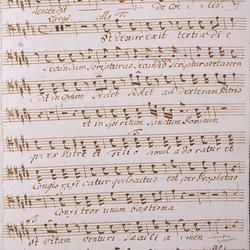 descendit de Coelis
Largo allo
Et resurexit tertia die
secundum Scripturas secundum Scripturas et ascen
dit in Coelum Sedet Sedet ad dexteram Patris
et in Spiritum Sanctum Dominum
qui ex Patre et Filio simul adoratur et
Conglorificatur qui locutus est per Prophetas
Confiteor unum baptisma
et vitam venturi saeculi amen